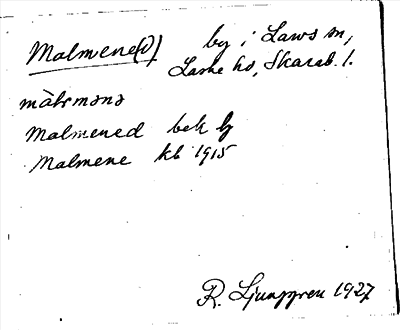 Malmene(d) by i Laws sn,
Laske hd, Skarab. l.
màlmənə
Malmened bek by
Malmene kb 1915
R. Ljunggren 1927